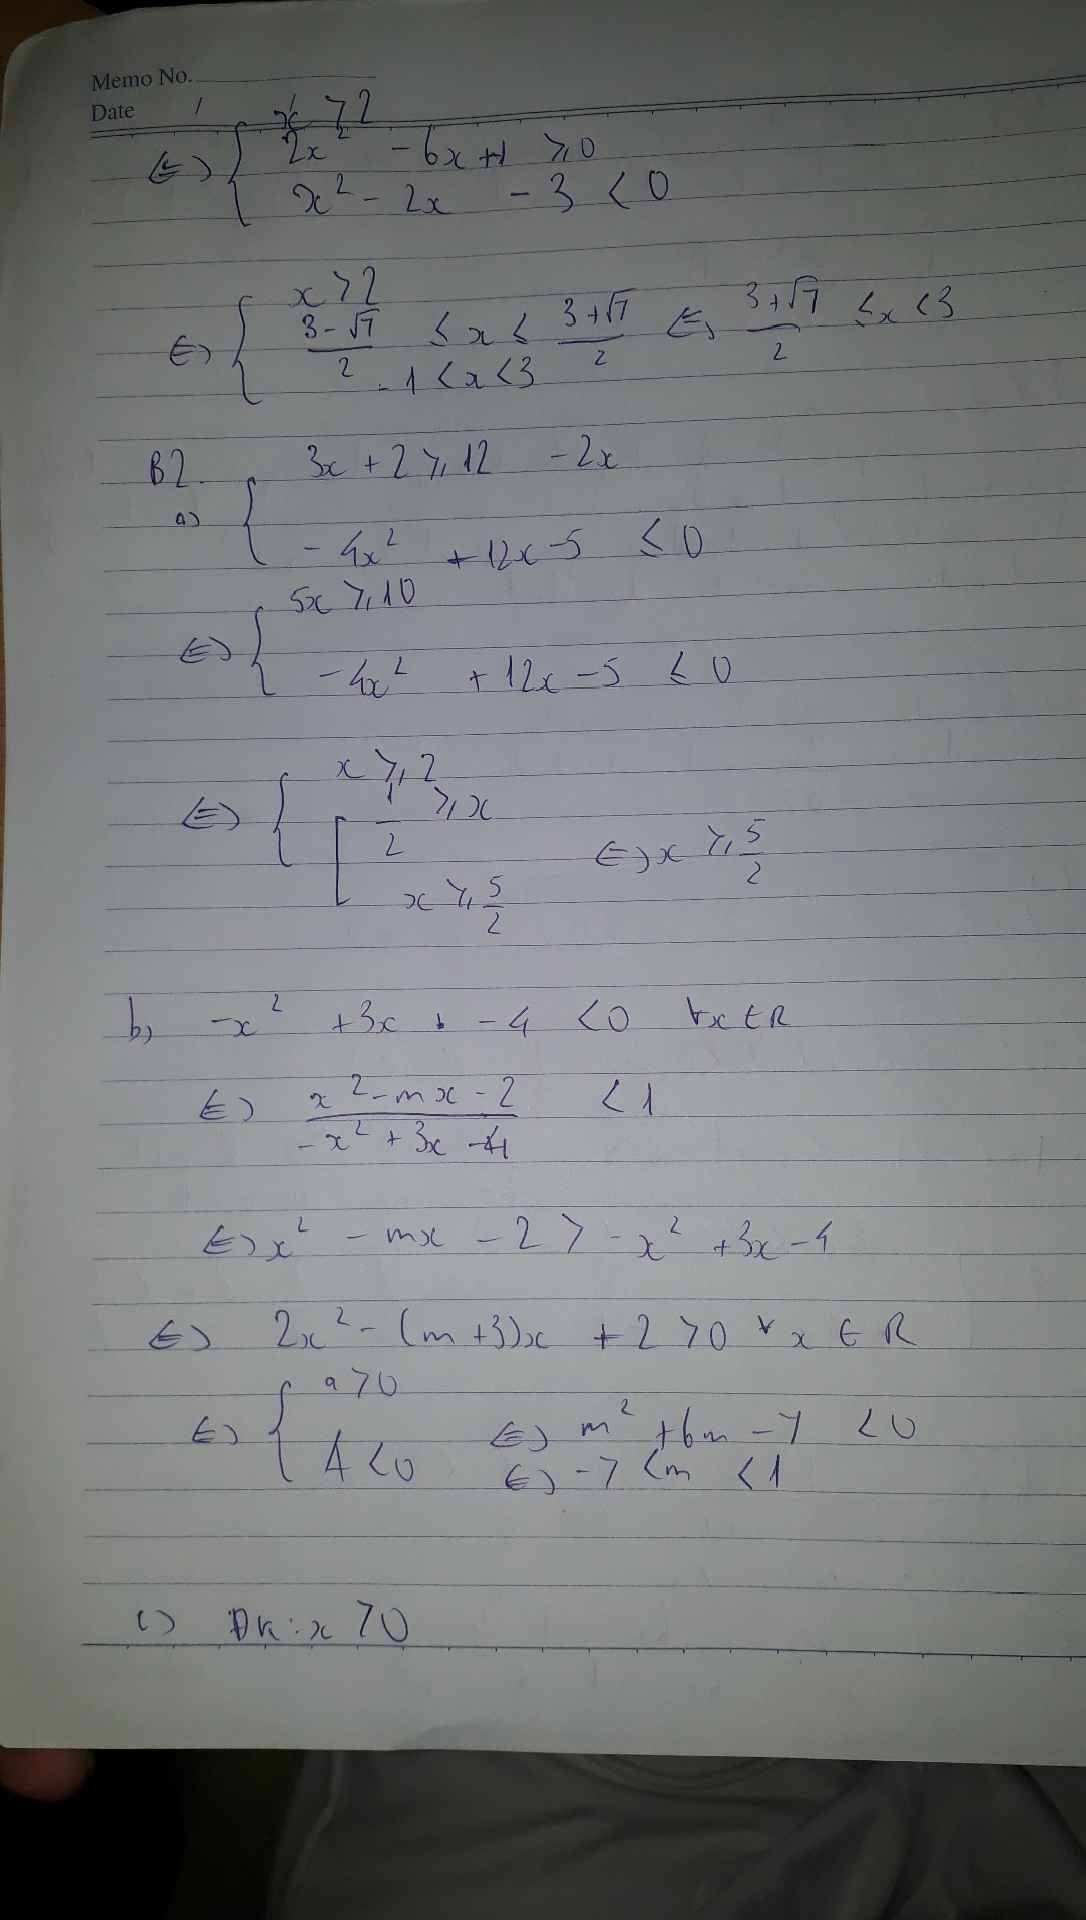 Memo No.
Date /
x > 2
⇔ { 2x² - 6x + 1 ⩾ 0
x² - 2x - 3 < 0
x > 2
⇔ { (3-√7)/2 ≤ x ≤ (3+√7)/2 ⇔ (3+√7)/2 ≤ x < 3
-1 < x < 3
B2. 3x + 2 ⩾ 12 - 2x
a) {
-4x² + 12x - 5 ≤ 0
5x ⩾ 10
⇔ {
-4x² + 12x - 5 ≤ 0
x ⩾ 2
⇔ { [ 1/2 ⩾ x
⇔ x ⩾ 5/2
x ⩾ 5/2
b) -x² + 3x - 4 < 0 ∀x ∈ R
⇔ (x² - mx - 2)/(-x² + 3x - 4) < 1
⇔ x² - mx - 2 > -x² + 3x - 4
⇔ 2x² - (m+3)x + 2 > 0 ∀ x ∈ R
⇔ { a > 0
Δ < 0 ⇔ m² + 6m - 7 < 0
⇔ -7 < m < 1
c) Đk: x > 0